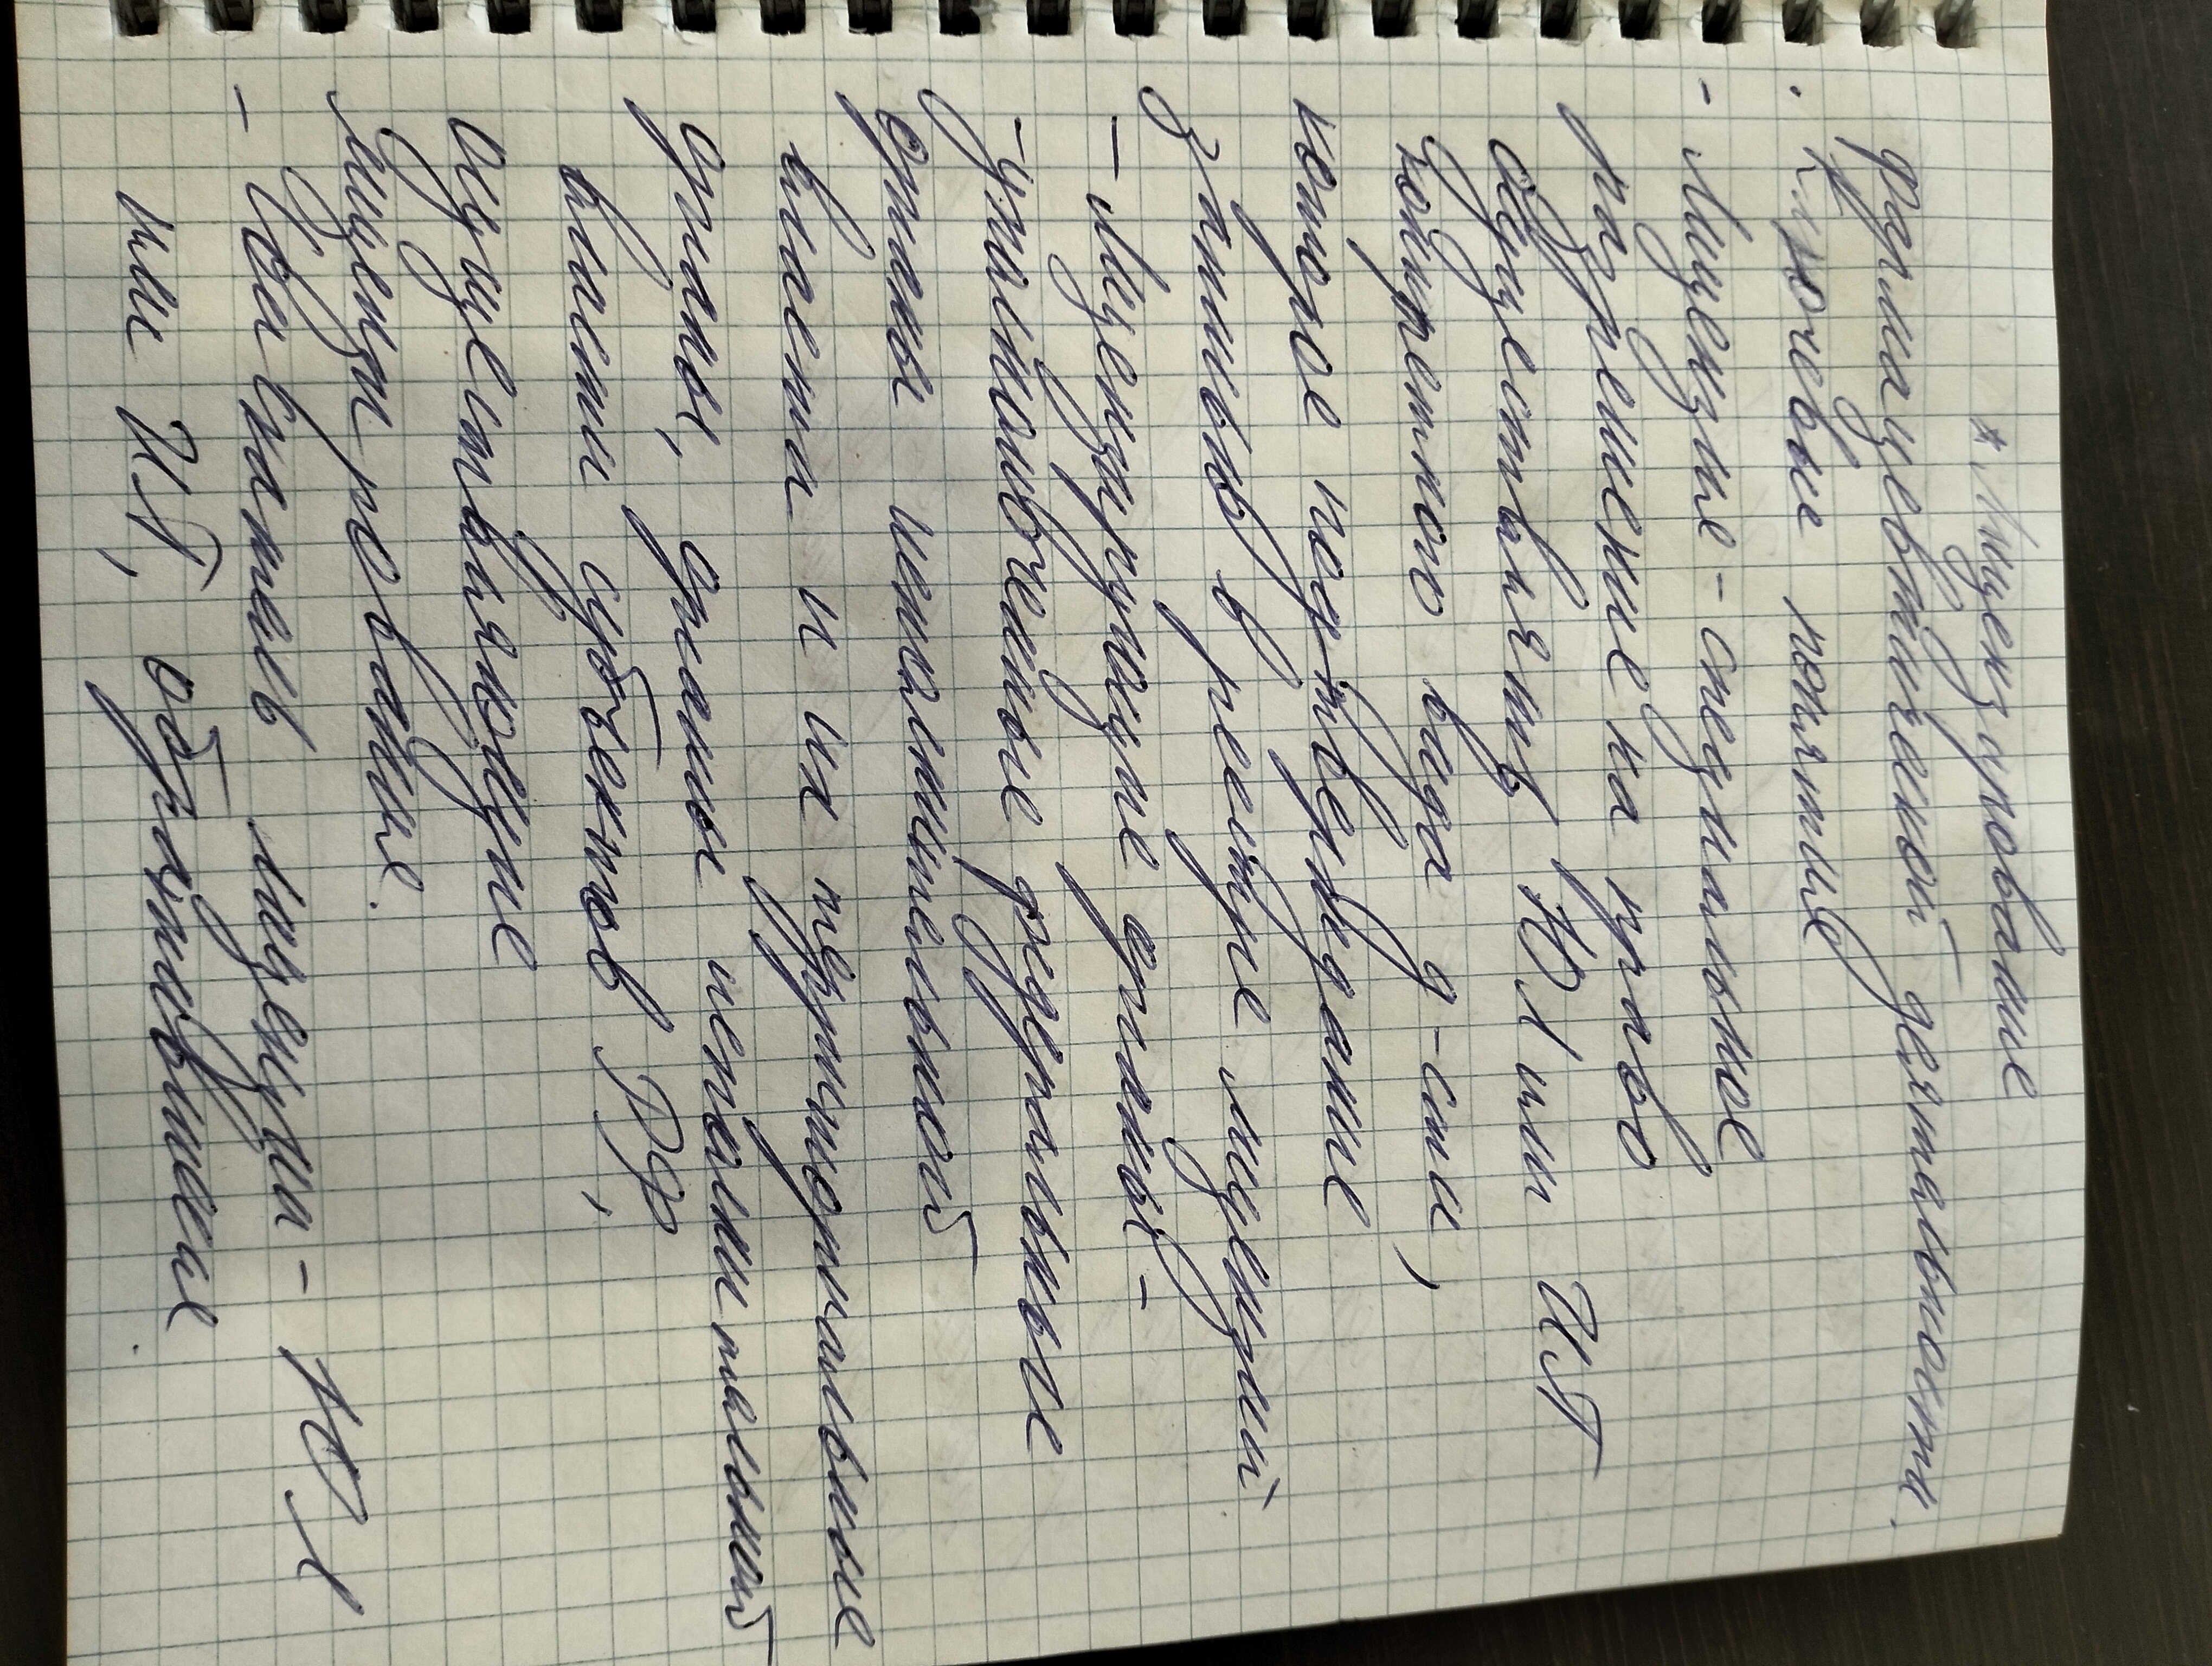 * Лицензирование
фармацевтической деятельности.
. Ключевые понятие
- Лицензие - специальное
разрешение на право
осуществлять ЮЛ или ИП
конкретного вида д-сти,
которое подтверждание
записью в реестре лицензий
- Лицензирующие органы -
- уполномоченные федеральные
органы исполнительной
власти и их территориальные
органы, органы исполнительный
власти субъектов РФ,
осуществляющие
лицензирование.
- Соискатель лицензии - ЮЛ
или ИП, обратившиеся